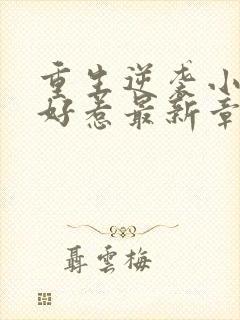 重生逆袭小
好惹最新章
聂雲梅